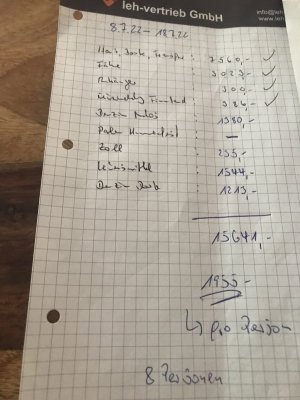 leh-vertrieb GmbH
info@leh
8.7.22 - 18.7.22
Haus, Boote, Transfer : 7560,-
Fähre : 3023,-
Anhänger : 300,-
Übernachtung Finnland : 386,-
Benzin Autos : 1380,-
: —
Zoll : 235,-
Lebensmittel : 1544,-
Benzin Boote : 1213,-
15641,-
1955,-
↳ pro Person
8 Personen